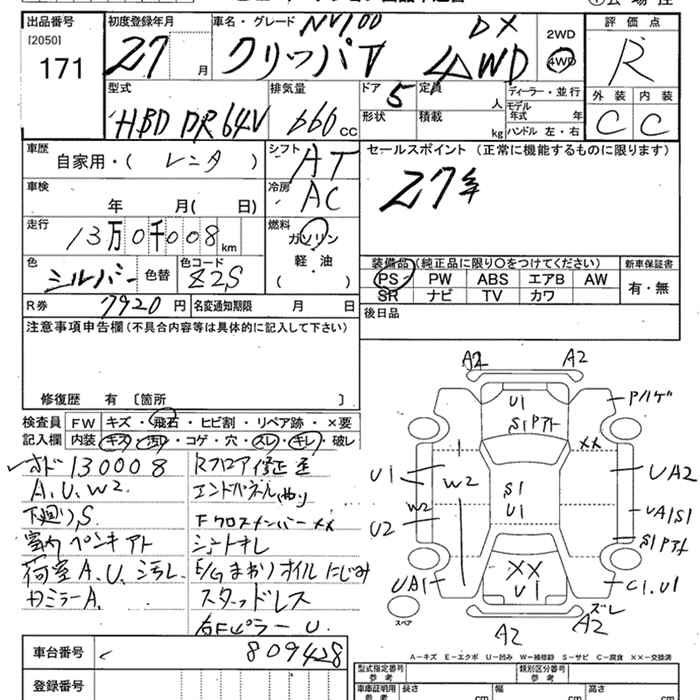 出品番号
[2050]
171
初度登録年月
27 月
車名・グレード
NV100
クリッパV DX 4WD
2WD
4WD
評価点
R
外装 内装
C C
型式
HBD DR64V
排気量
660 CC
ドア 5
形状
定員 人
積載 kg
ディーラー・並行
モデル年式 年
ハンドル 左・右
車歴
自家用・( レンタ )
シフト AT
車検
年 月( 日)
冷房 AC
走行
13万0千008 km
燃料
ガソリン
軽・油
( )
色 シルバー 色替
色コード Z2S
R券 7920 円 名変通知期限 月 日
セールスポイント (正常に機能するものに限ります)
27年
装備品 (純正品に限り〇をつけてください)
PS PW ABS エアB AW
SR ナビ TV カワ
新車保証書
有・無
後日品
注意事項申告欄 (不具合内容等は具体的に記入して下さい)
修復歴 有 〔箇所 〕
検査員記入欄
FW キズ・飛石・ヒビ割・リペア跡・×要
内装 キズ・汚れ・コゲ・穴・スレ・キレ・破レ
オド130008
A、U、W2
下廻り、S
室内 ペンキアト
荷室A、U、ヨゴレ
カミラーA
Rフロア修正
エンドパネル
Fクロスメンバー XX
シートキレ
E/G まわりオイルにじみ
スタッドレス
右Fピラー U
A2 A2
U1
S1Pアト
Pハゲ
XX
U1
W2
W2
U2
S1
U1
UA2
UA1S1
S1Pアト
XX
U1
UA1
C1、U1
ズレ
A2 A2
スペア
A－キズ E－エクボ U－凹み W－補修跡 S－サビ C－腐食 XX－交換済
車台番号 809428
登録番号
型式指定番号 参考
類別区分番号 参考
車庫証明用 参考
長さ cm
幅 cm
高さ cm